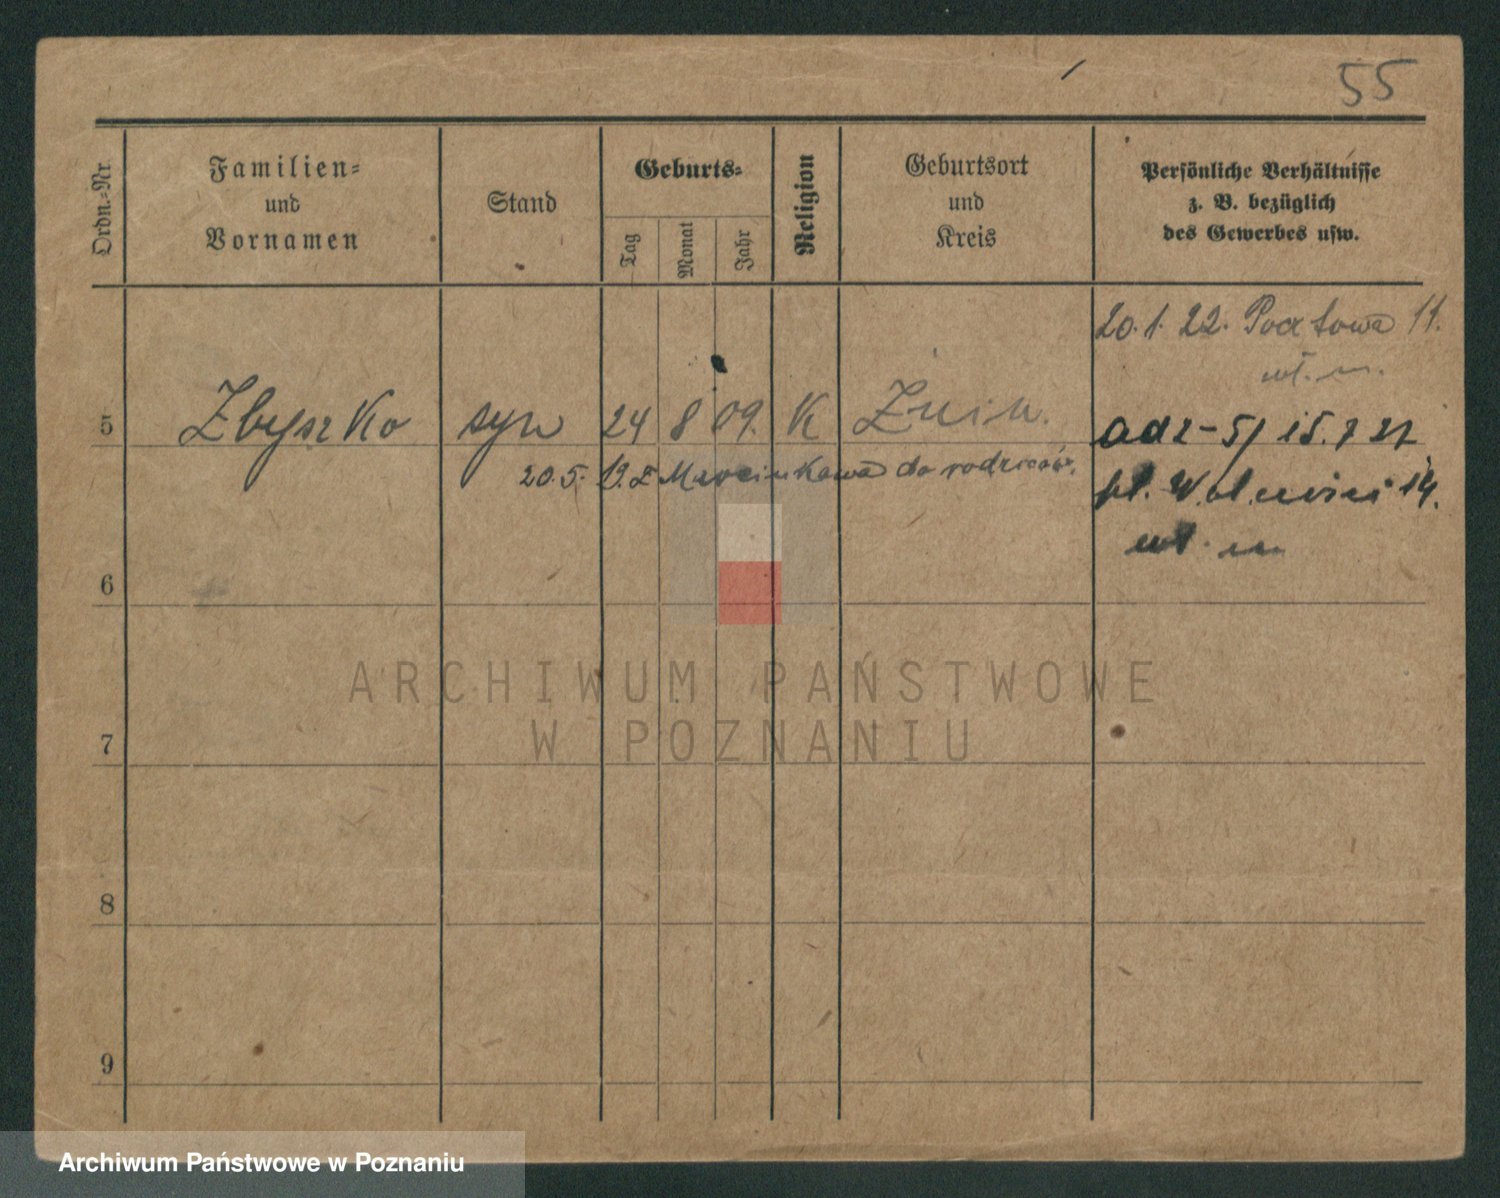 55
Ordn.-Nr.
Familien-
und
Vornamen
Stand
Geburts-
Tag
Monat
Jahr
Religion
Geburtsort
und
Kreis
Persönliche Verhältnisse
z. B. bezüglich
des Gewerbes usw.
20. 1. 22. Pocztowa 11.
wł. m.
5 Zbyszko syn 24 8 09. K Żnin.
20. 5. 19. Z Marcinkowa do rodziców.
pl. Wolności 14.
wł. m
6
7
8
9
ARCHIWUM PAŃSTWOWE
W POZNANIU
Archiwum Państwowe w Poznaniu